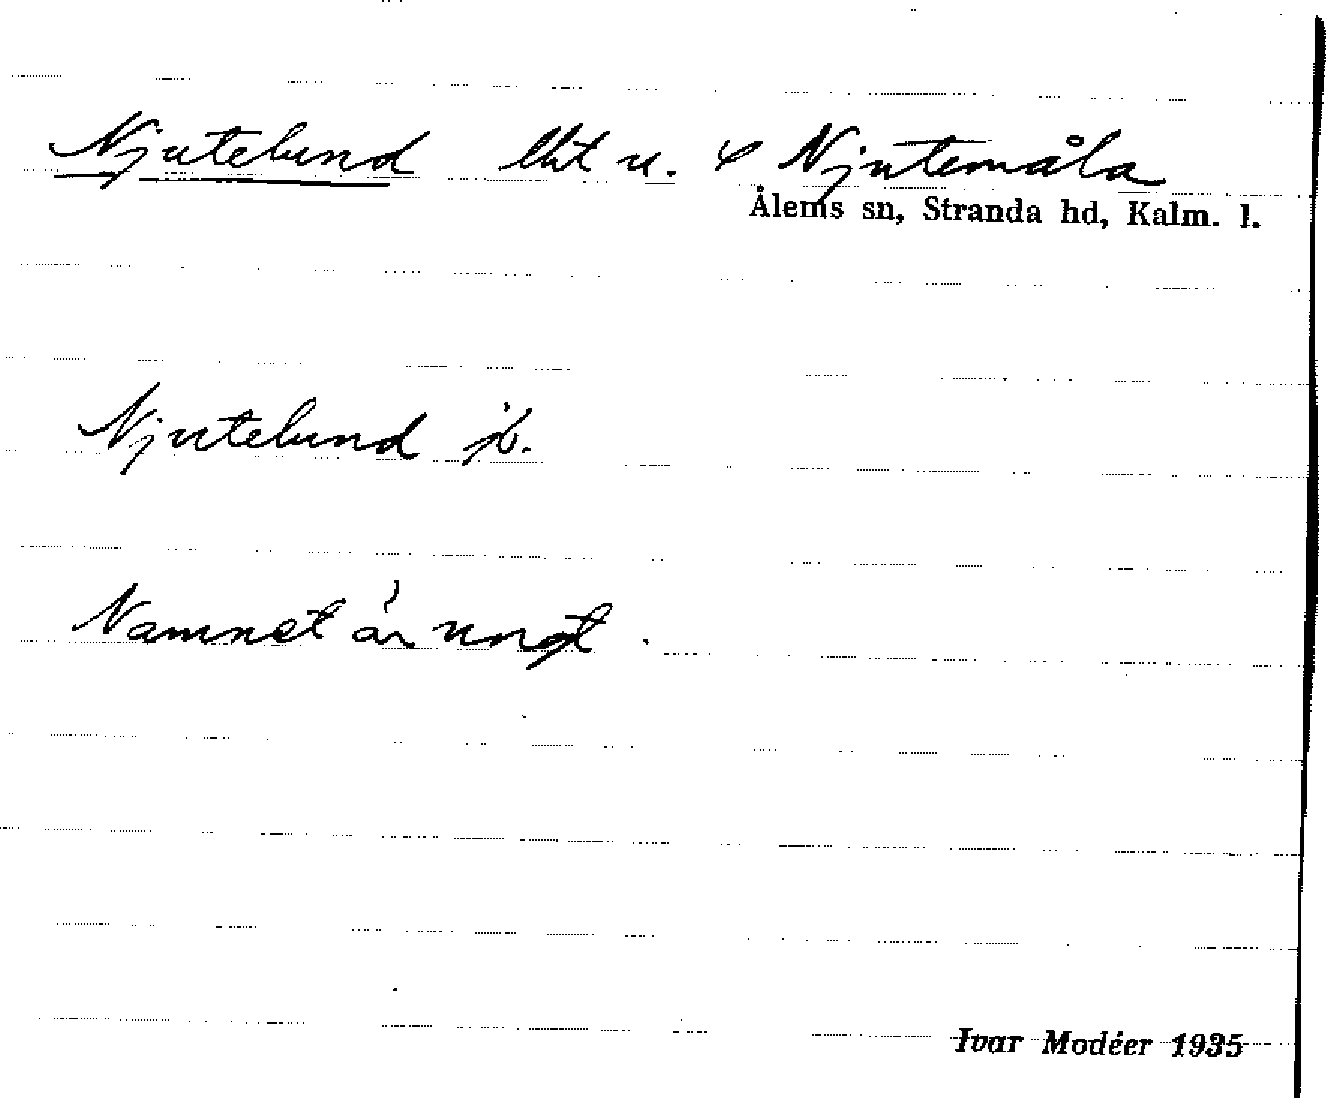 Njutelund lht u. Njutemåla
Ålems sn, Stranda hd, Kalm. l.
Njutelund jb.
Namnet är ungt.
Ivar Modéer 1935